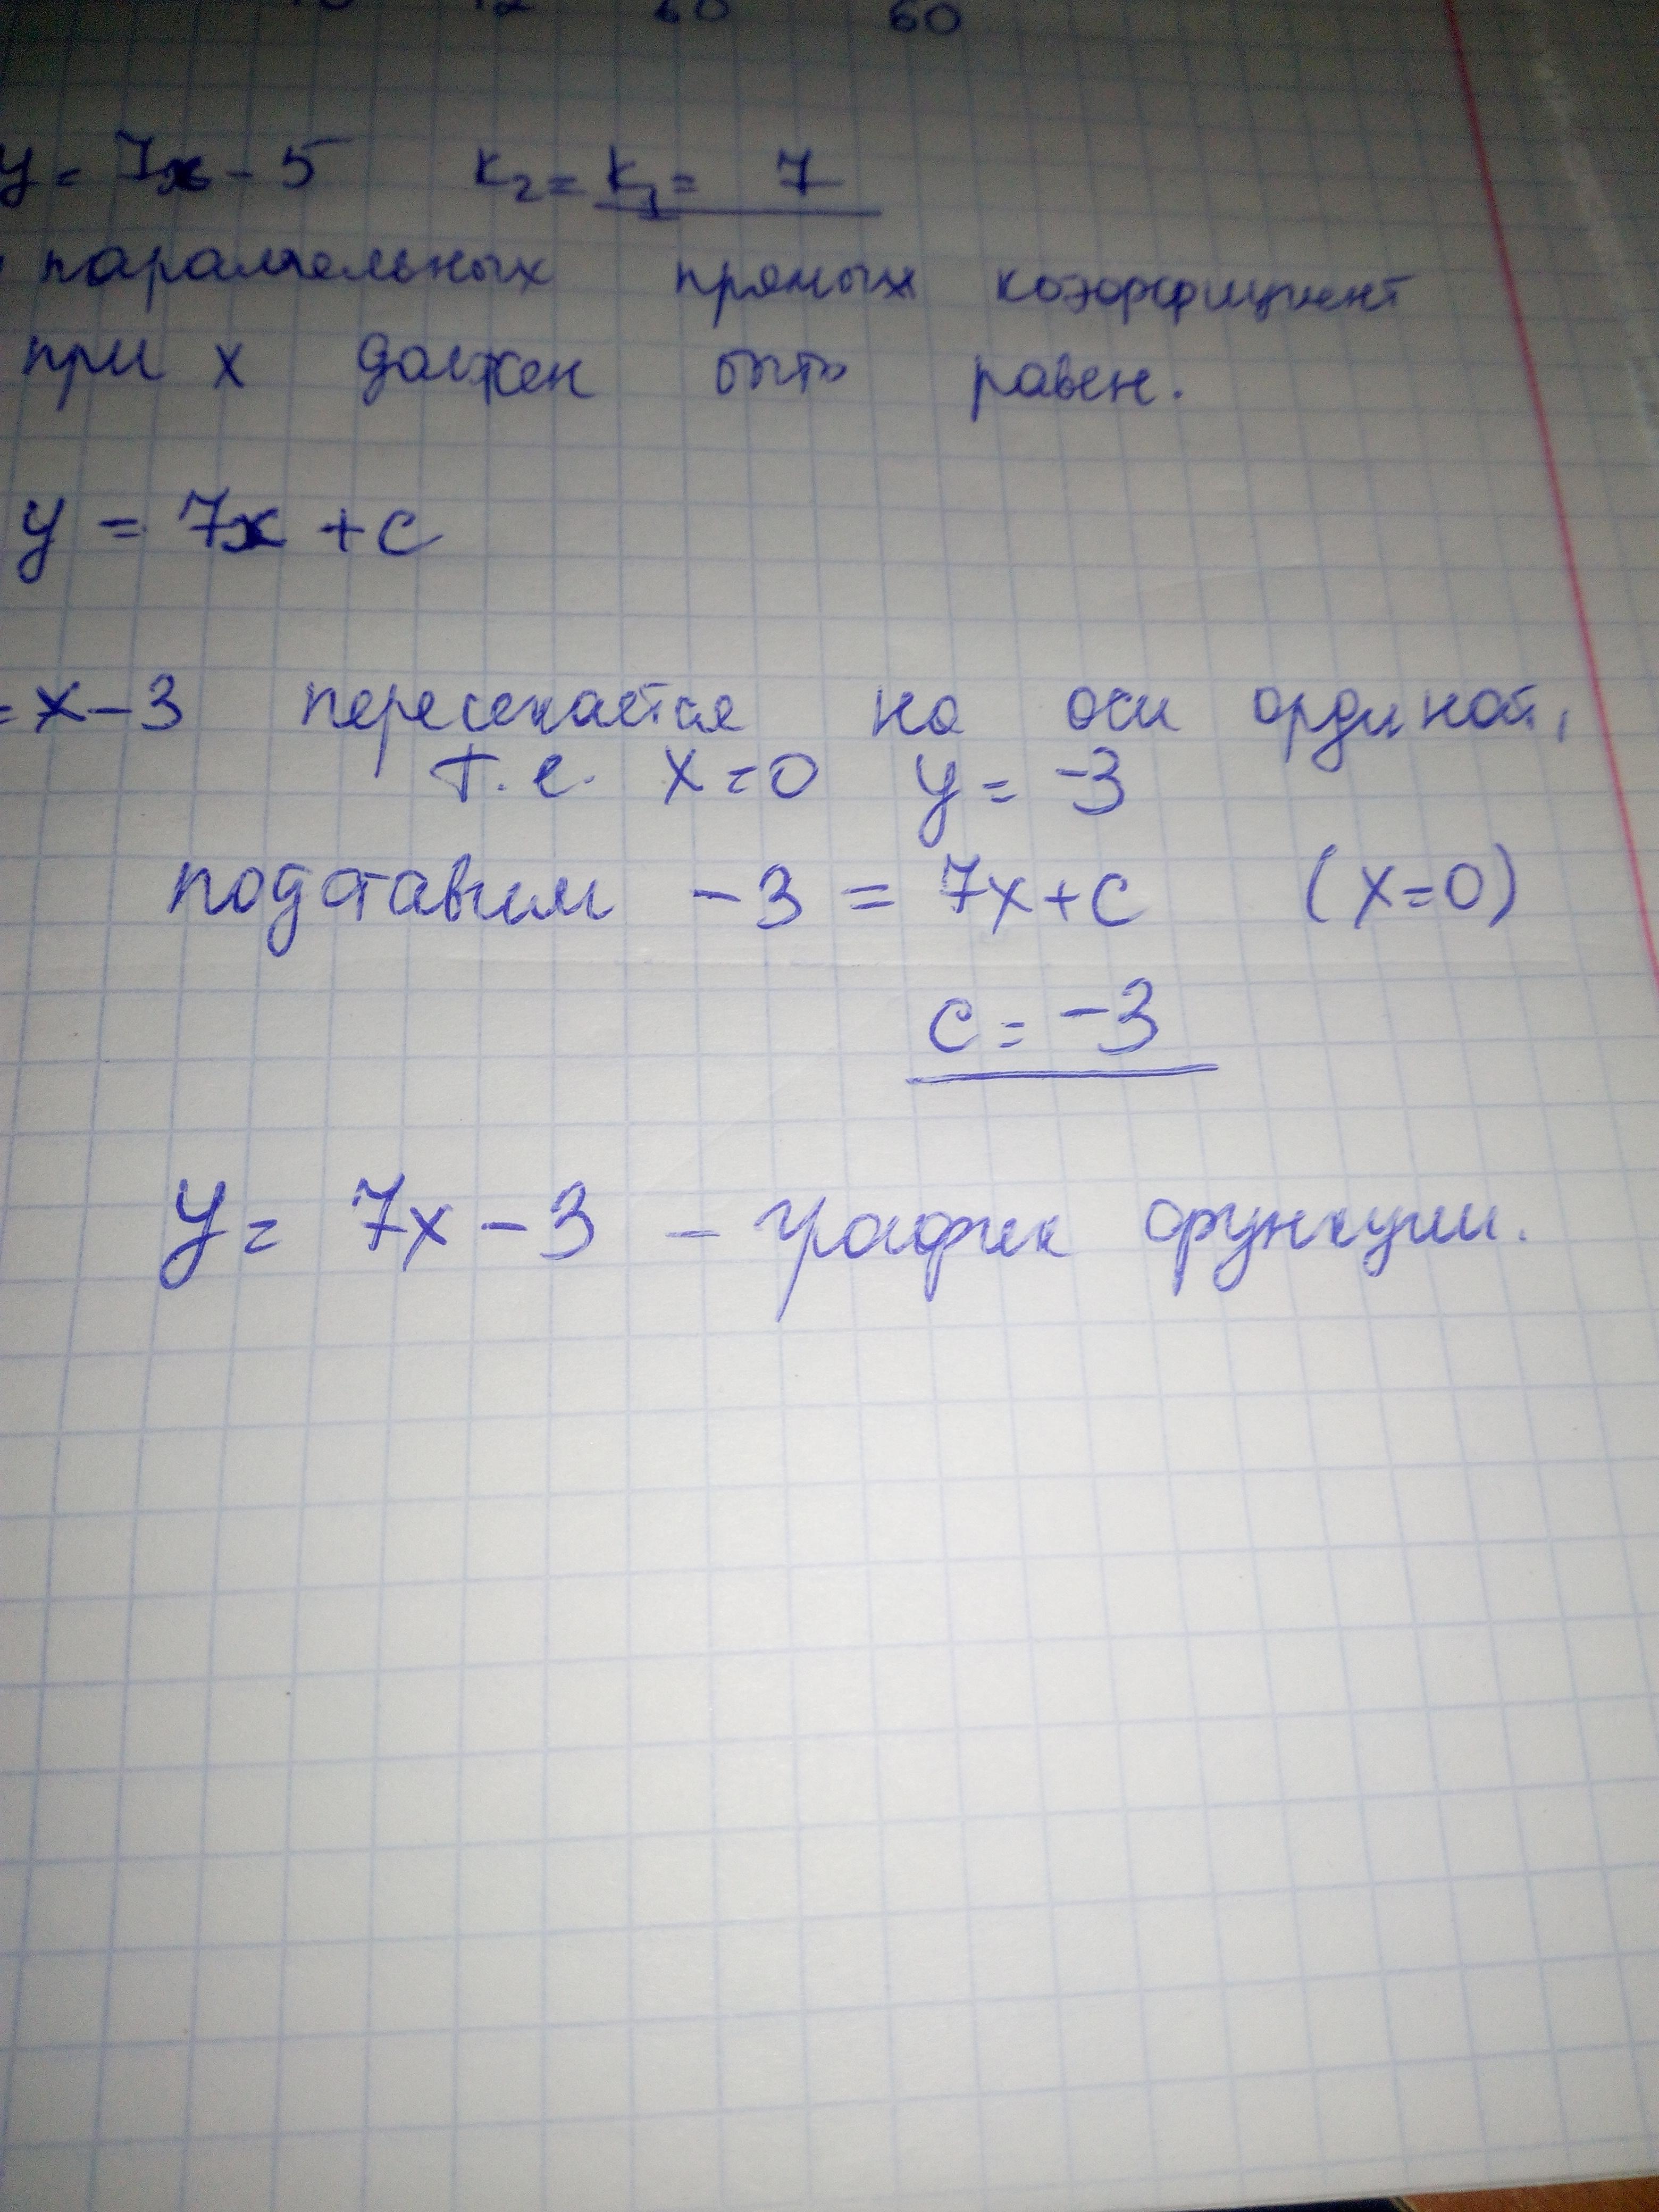 60 60
y = 7x - 5 k₂ = k₁ = 7
параллельных прямых коэффициент
при x должен быть равен.
y = 7x + c
= x - 3 пересекается на оси ординат,
т.е. x = 0 y = -3
подставим -3 = 7x + c (x = 0)
c = -3
y = 7x - 3 - график функции.